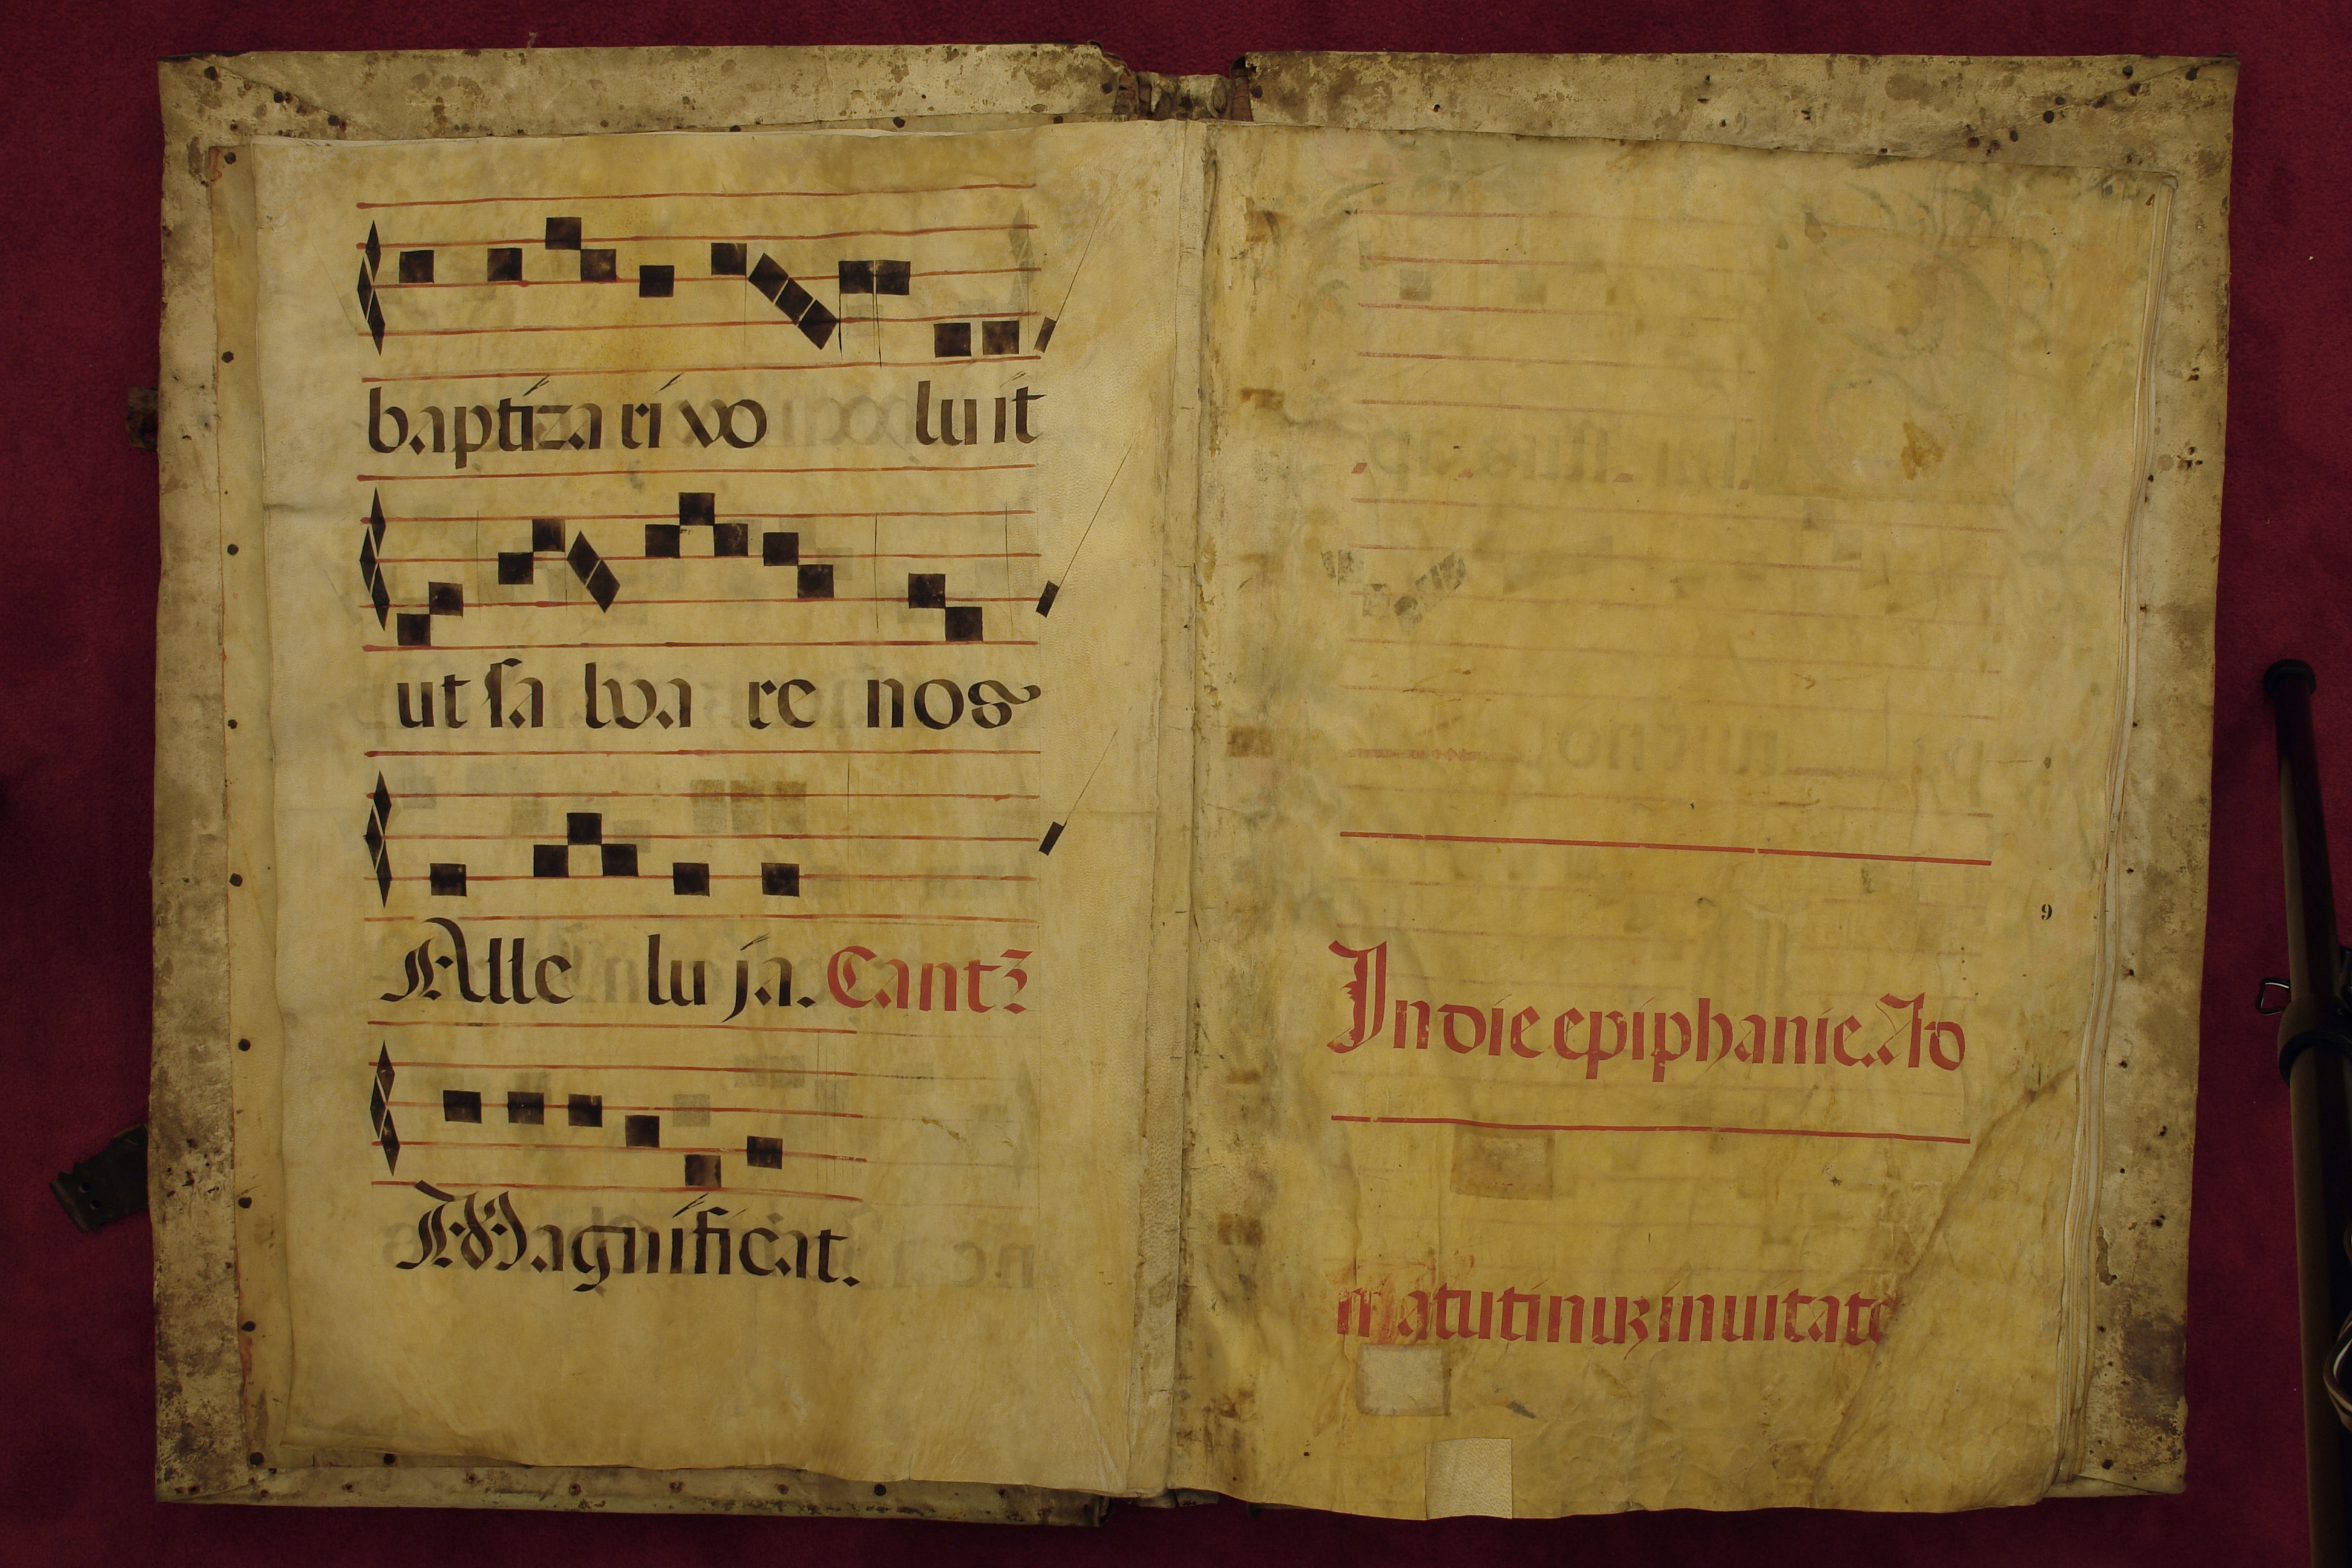 baptiza ri vo luit
ut sa lva re nos
Alle lu ja. Cantꝫ
Magnificat.
9
In die epiphanie. Ad
matutinuꝫ inuitato